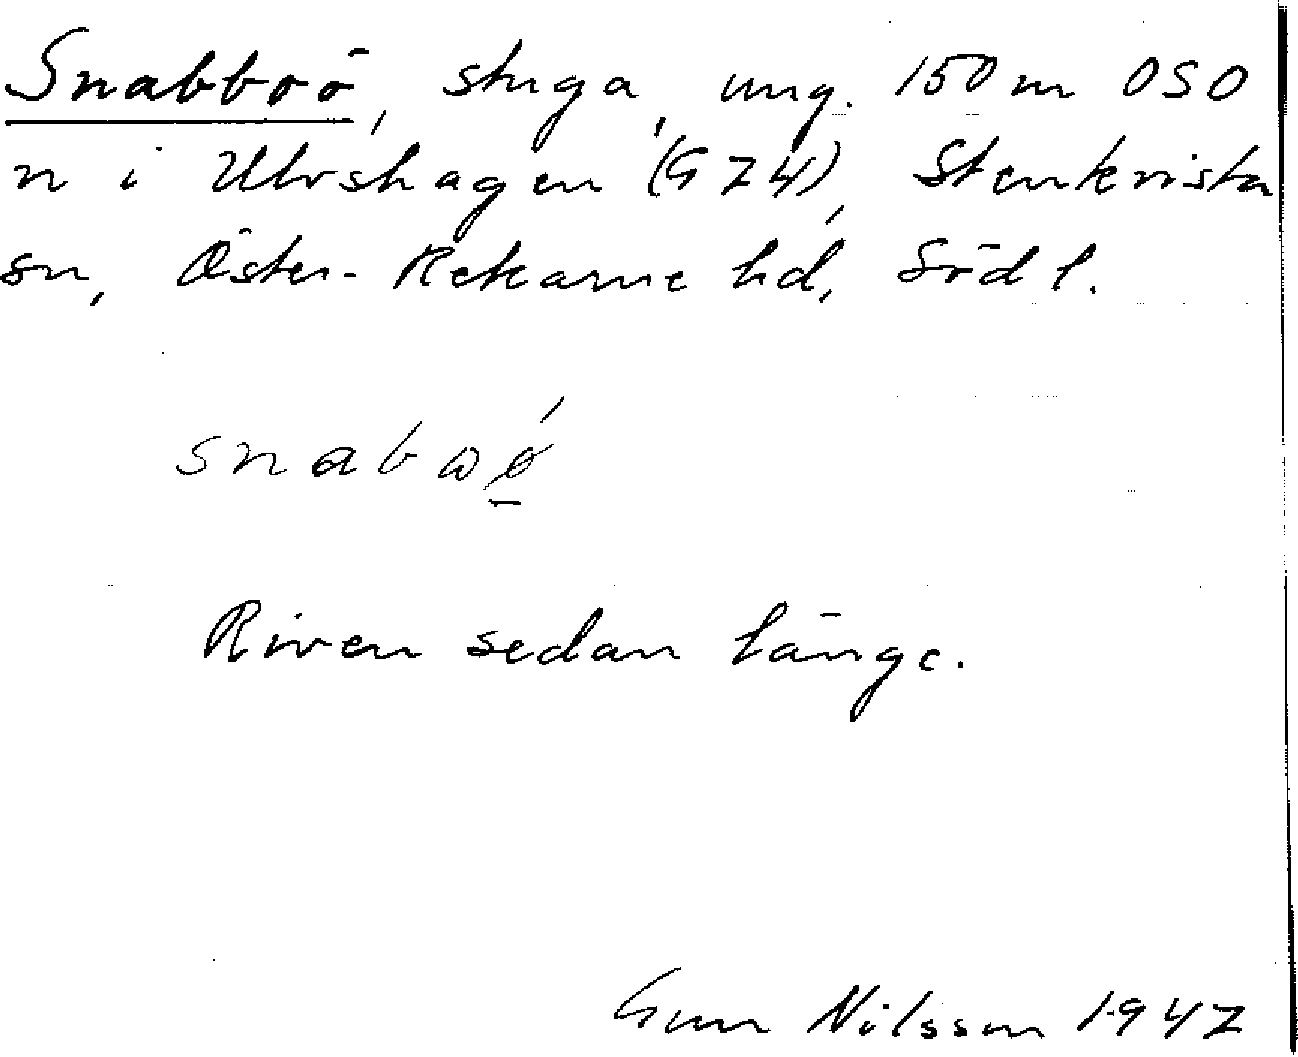 Snabboö, stuga, ung. 150 m OSO
n i Ulvshagen (G Z 4), Stenkvista
sn, Öster-Rekarne hd, Södl.
snabωǿ
Riven sedan länge.
Gun Nilsson 1947